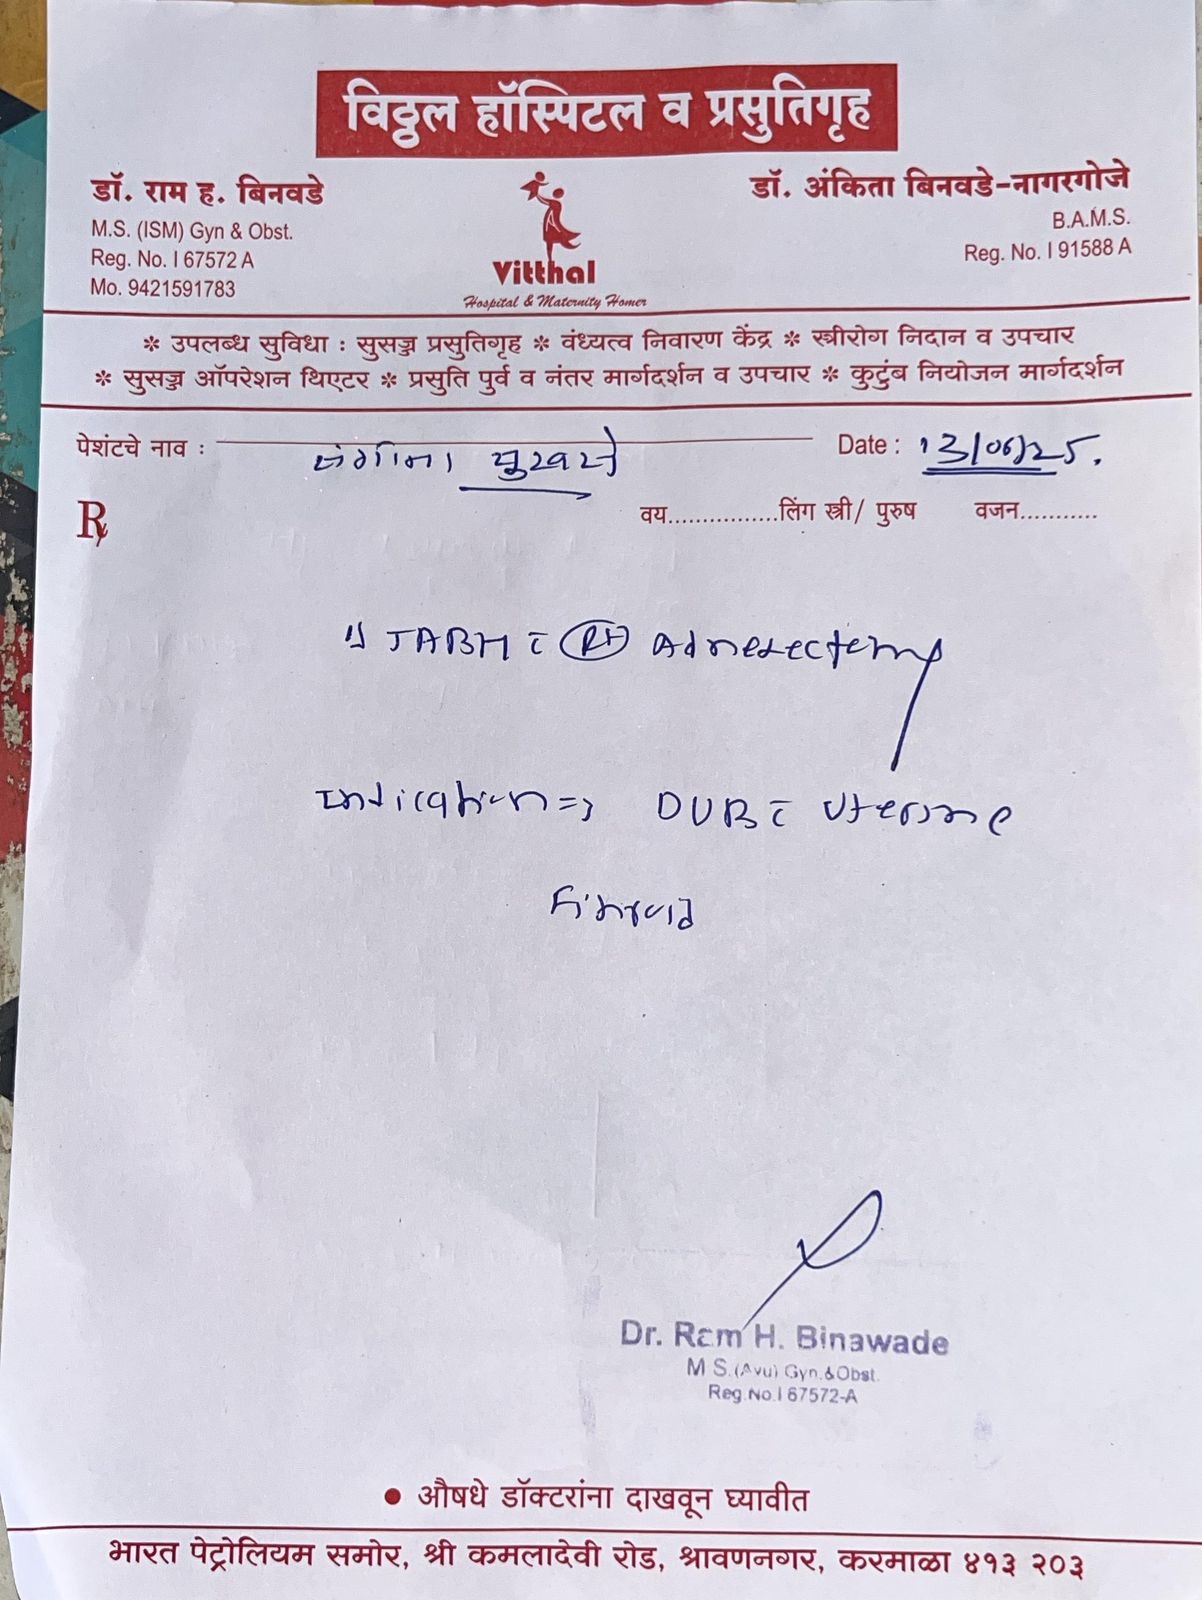 विठ्ठल हॉस्पिटल व प्रसुतिगृह
डॉ. राम ह. बिनवडे
M.S. (ISM) Gyn & Obst.
Reg. No. I 67572 A
Mo. 9421591783
Vitthal
Hospital & Maternity Homer
डॉ. अंकिता बिनवडे-नागरगोजे
B.A.M.S.
Reg. No. I 91588 A
* उपलब्ध सुविधा : सुसज्ज प्रसुतिगृह * वंध्यत्व निवारण केंद्र * स्त्रीरोग निदान व उपचार
* सुसज्ज ऑपरेशन थिएटर * प्रसुति पुर्व व नंतर मार्गदर्शन व उपचार * कुटुंब नियोजन मार्गदर्शन
पेशंटचे नाव : Date : 13/06/25.
℞ वय................लिंग स्त्री/ पुरुष वजन...........
Indication => DUB c̄ Uterine
Fibroid
Dr. Ram H. Binawade
M S.(Ayu) Gyn.&Obst.
Reg.No.I 67572-A
• औषधे डॉक्टरांना दाखवून घ्यावीत
भारत पेट्रोलियम समोर, श्री कमलादेवी रोड, श्रावणनगर, करमाळा ४१३ २०३